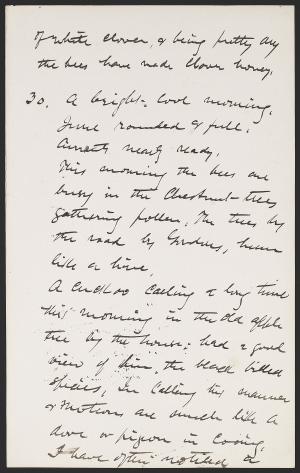 of white clover, & being pretty dry
the bees have made clover honey.
30. A bright - cool morning.
June rounded & full.
Currants nearly ready.
This morning the bees are
busy in the Chestnut-trees
gathering pollen, The trees by
the road by Gordons, hum
like a hive.
A cuckoo calling a long time
this morning in the old apple
tree by the house; had a good
view of him, the black billed
species, In calling his manner
& motions are much like a
dove or pigeon in cooing.
I have often noticed a